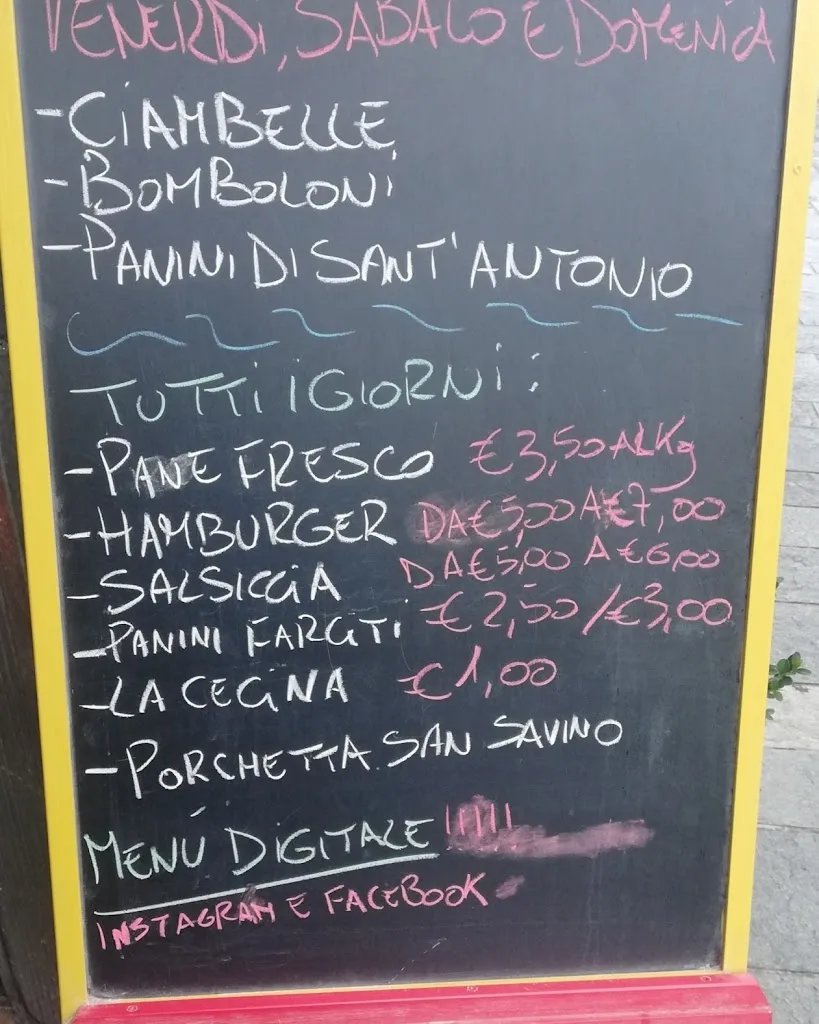 VENERDì, SABATO E DOMENICA
- CiAMBELLE
- BOMBOLONi
- PANINI DI SANT'ANTONIO
TUTTI I GIORNi:
- PANE FRESCO €3,50 AL Kg
- HAMBURGER DA €5,00 A €7,00
- SALSICCIA DA €5,00 A €6,00
- PANINI FARCITI €2,50/€3,00
- LA CECINA €1,00
- PORCHETTA SAN SAVINO
MENÚ DIGITALE !!!!!
INSTAGRAM E FACEBOOK